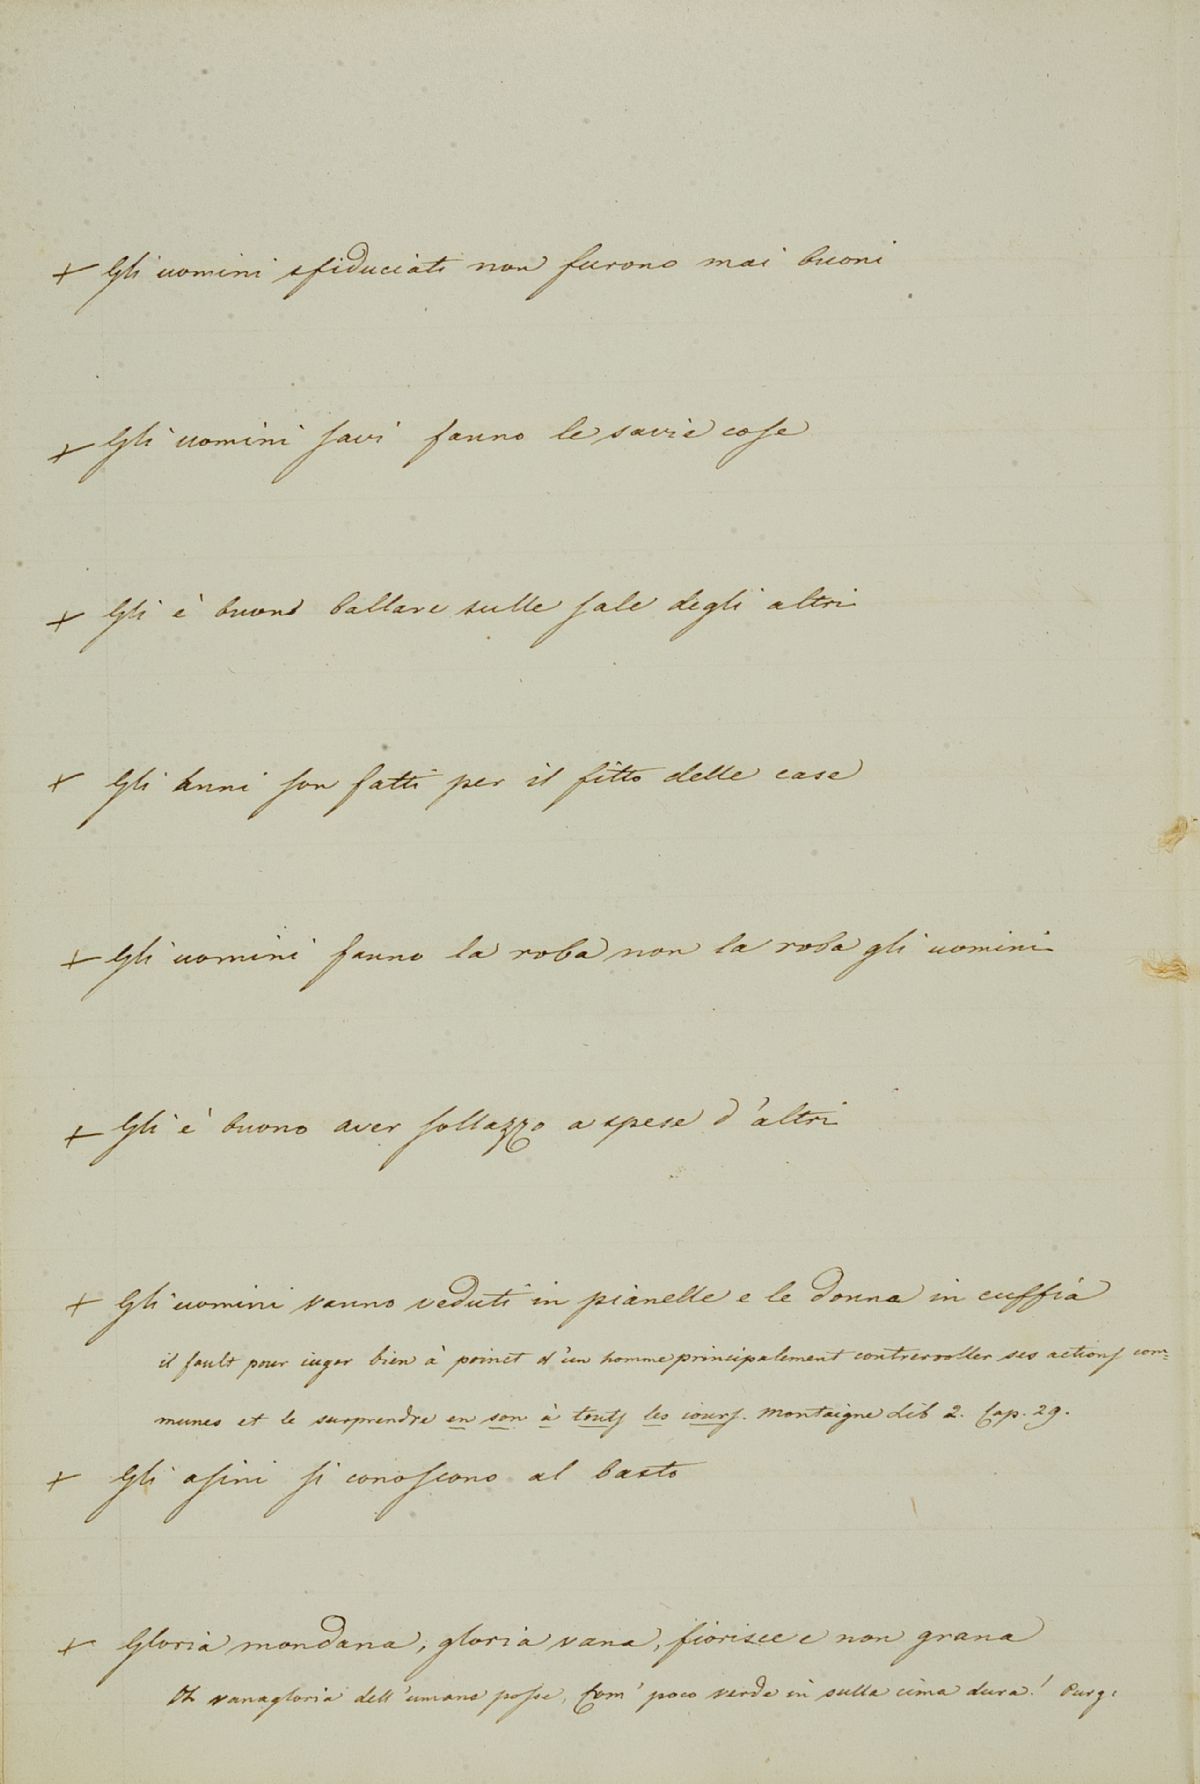 + Gli uomini sfiduciati non furono mai buoni
+ Gli uomini savi fanno le savie cose
+ Gli è buono ballare sulle sale degli altri
+ Gli anni son fatti per il fitto delle case
+ Gli uomini fanno la roba non la roba gli uomini
+ Gli è buono aver sollazzo a spese d'altri
+ Gli uomini vanno veduti in pianelle e le donne in cuffia
il fault pour iuger bien à poinct d'un homme principalement contreroller ses actions com=
munes et le surprendre en son à touts les iours. Montaigne Lib 2. Cap. 29.
+ Gli asini si conoscono al basto
+ Gloria mondana, gloria vana, fiorisce e non grana
Oh vanagloria dell'umane posse, Com' poco verde in sulla cima dura! Purg: